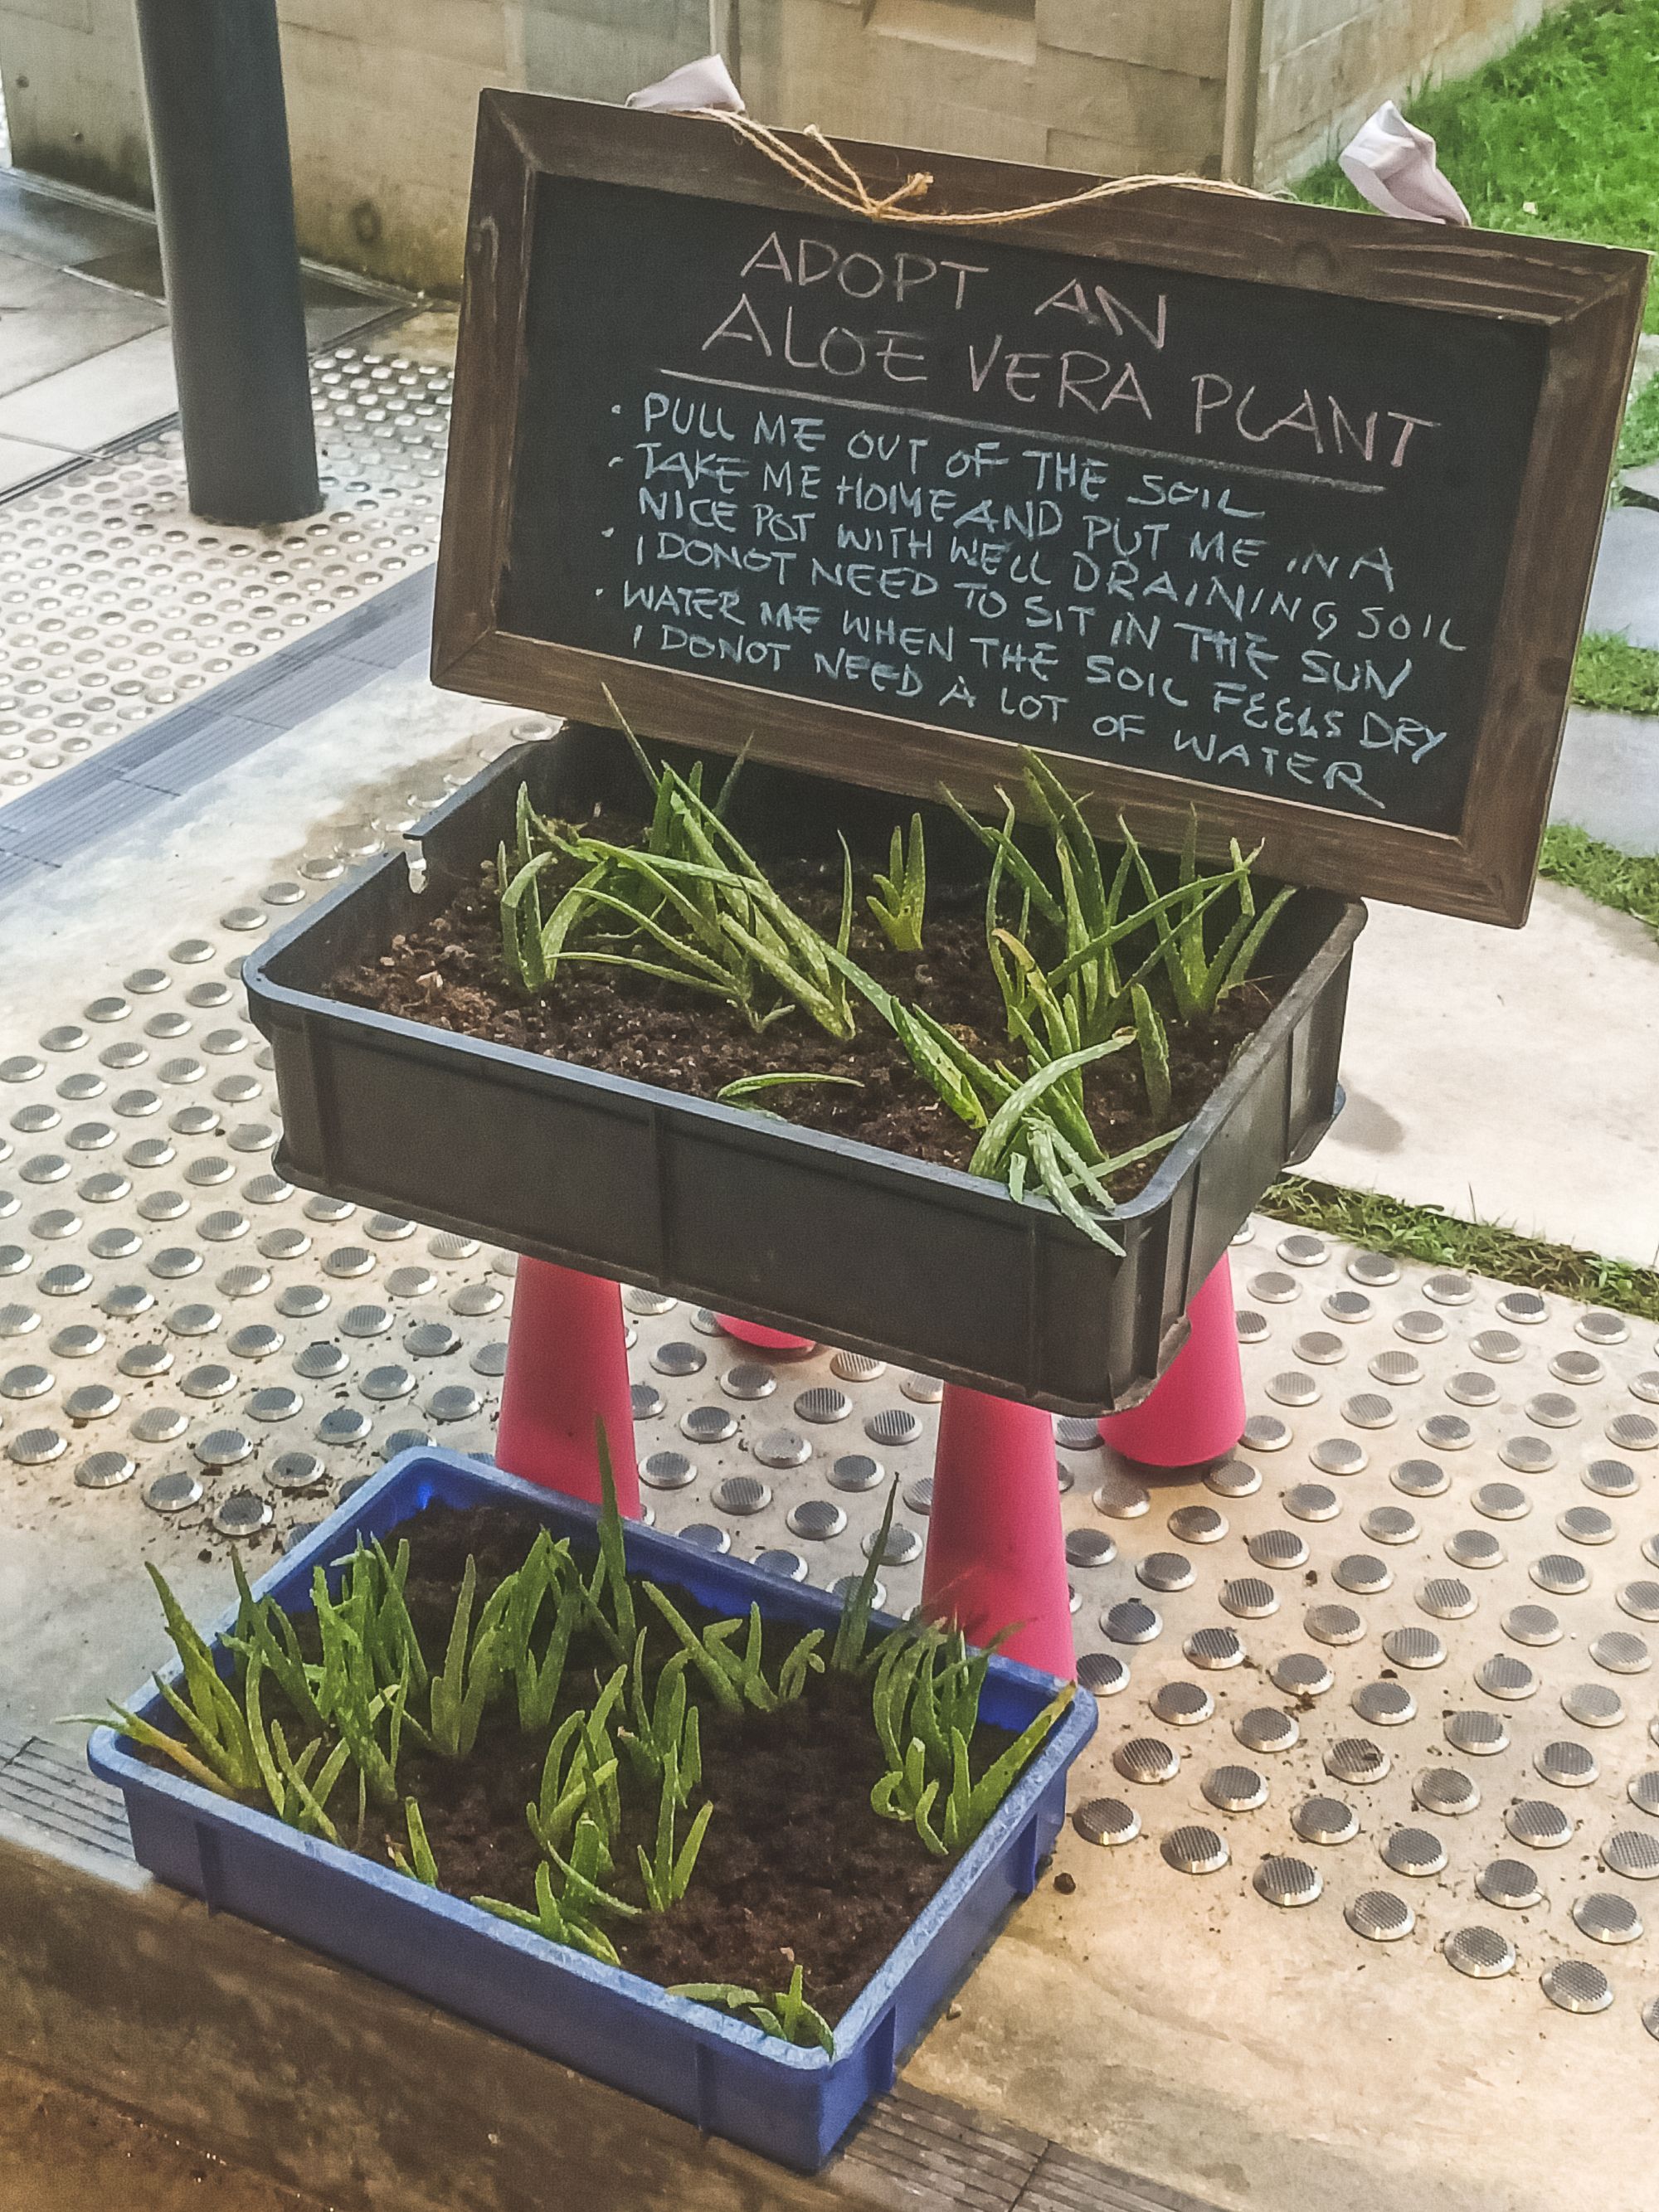 ADOPT AN
ALOE VERA PLANT
• PULL ME OUT OF THE SOIL
• TAKE ME HOME AND PUT ME IN A
NICE POT WITH WELL DRAINING SOIL
• I DONOT NEED TO SIT IN THE SUN
• WATER ME WHEN THE SOIL FEELS DRY
I DONOT NEED A LOT OF WATER